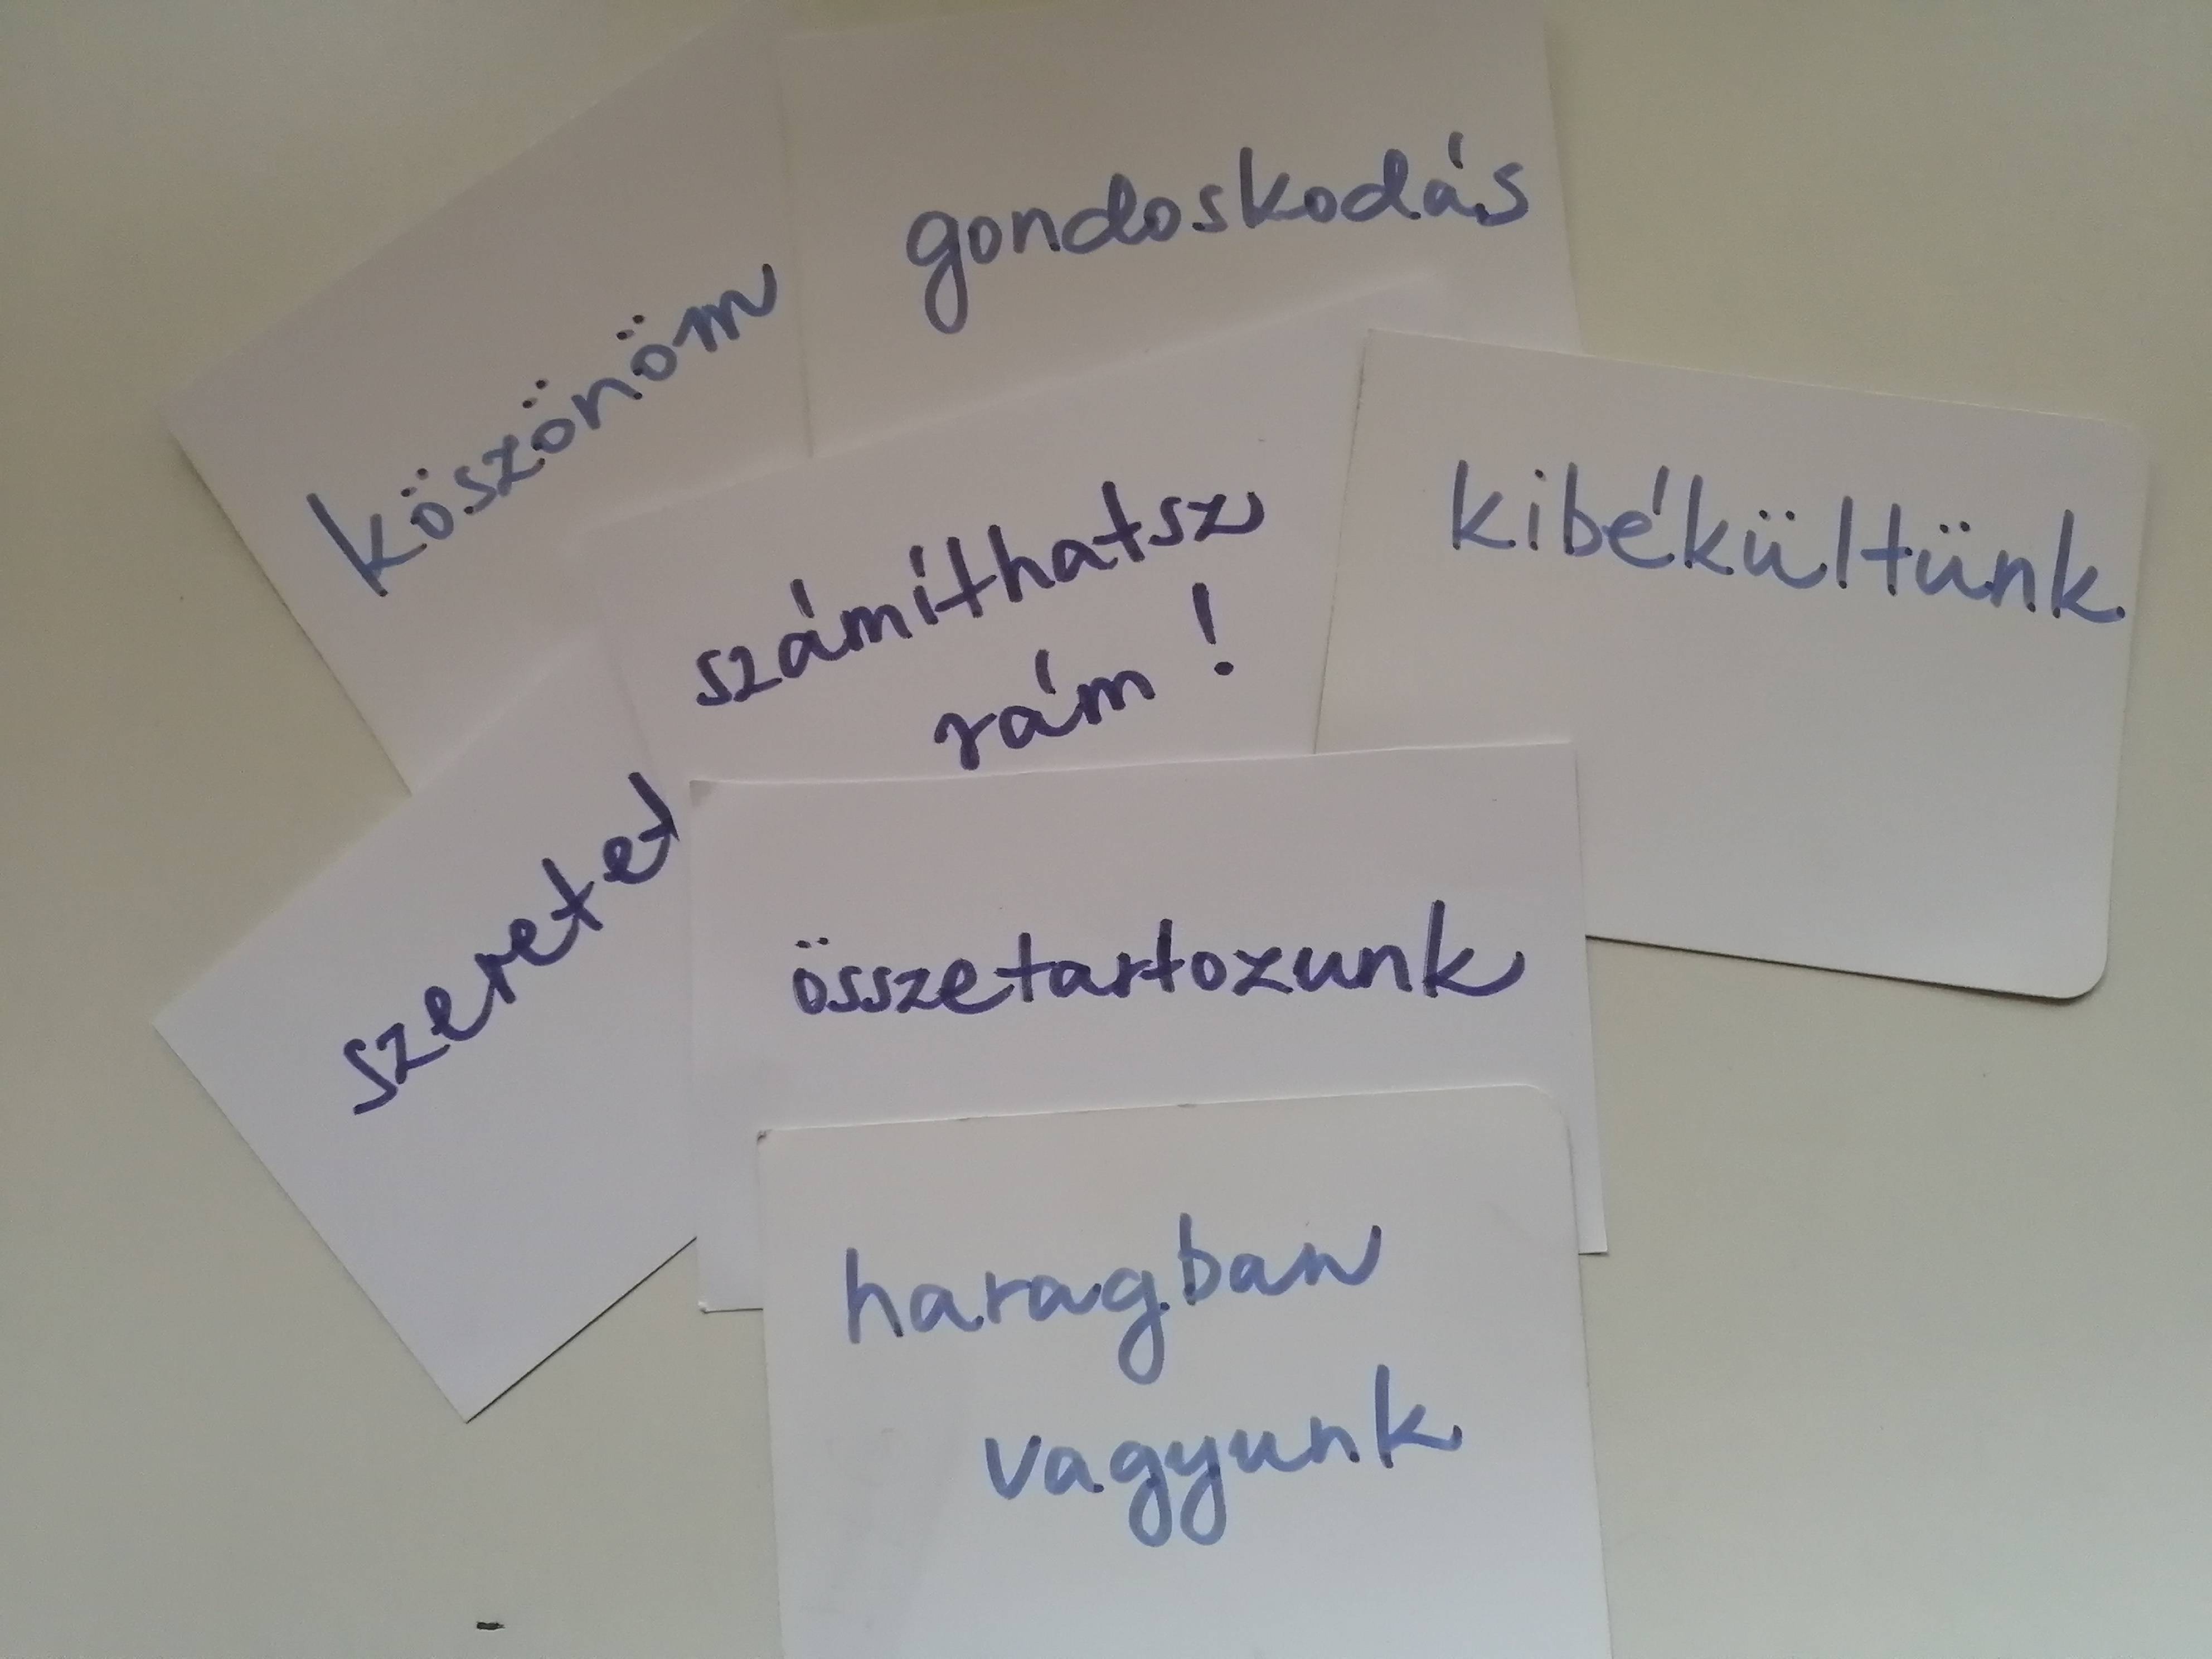 köszönöm
gondoskodás
számíthatsz
rám !
kibékültünk
szeretet
összetartozunk
haragban
vagyunk